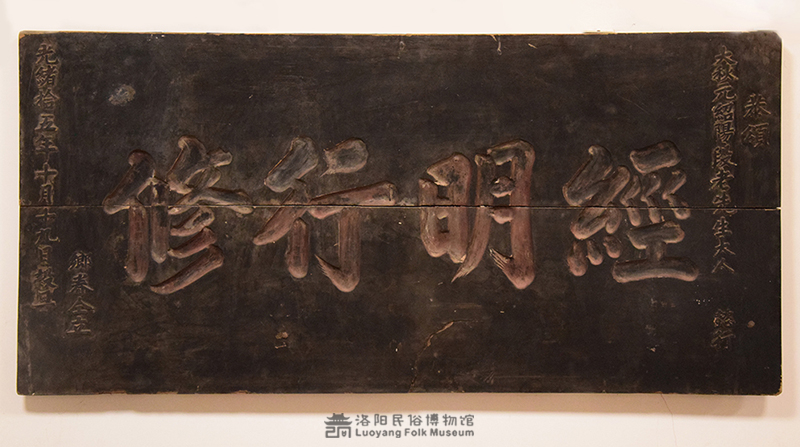 恭頌
大□元紹陽段老先生大人 懿行
經明行修
光緒拾五年十月十九日榖旦
鄉眷仝立
洛阳民俗博物馆
Luoyang Folk Museum